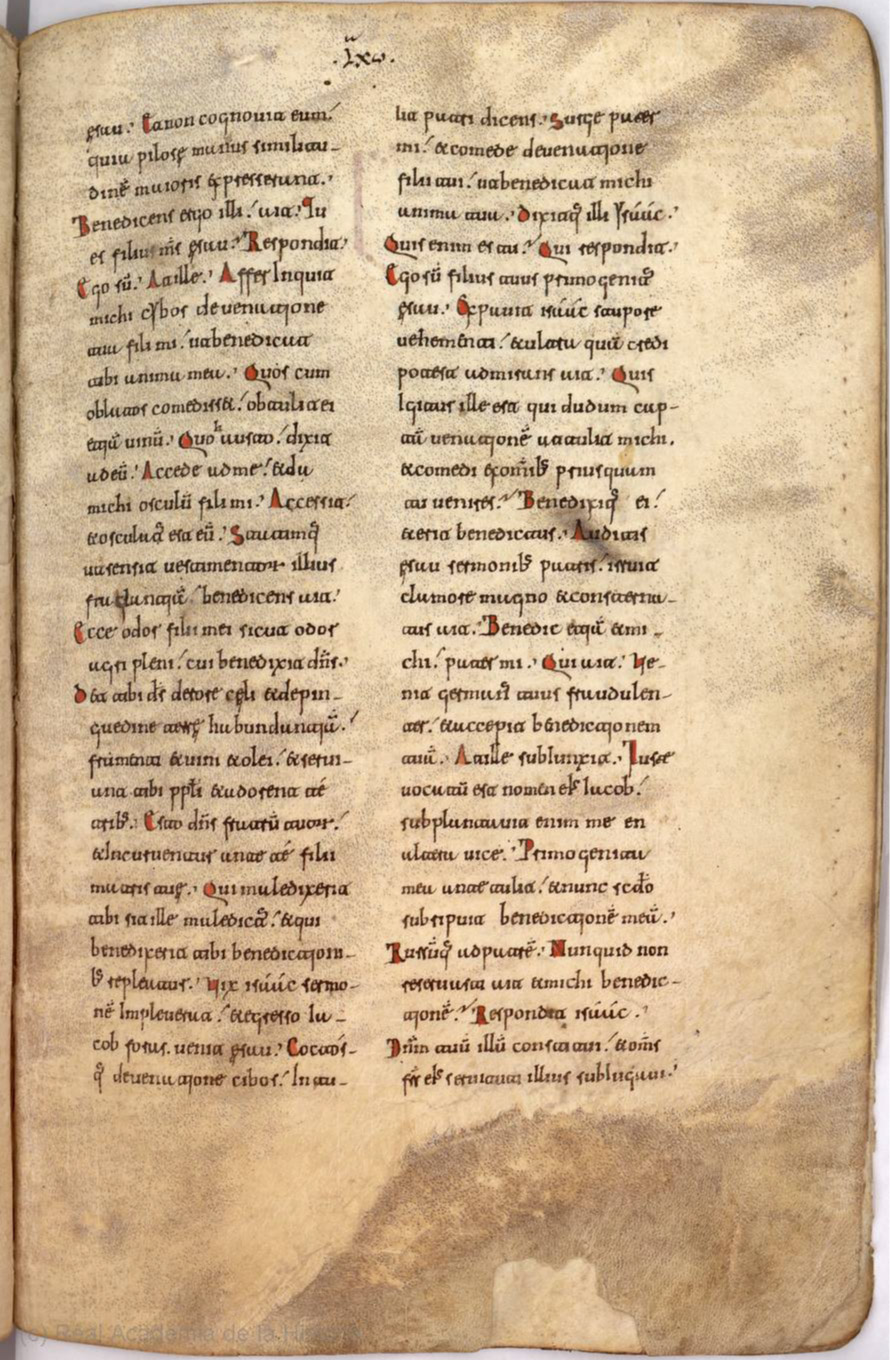 .Lxv.
esau. Et non cognovit eum.
quia pilose manus similitu-
dinē maioris expresserunt.
Benedicens ergo illi. ait. Tu
es filius m̄s esau. Respondit.
Ego sū. At ille. Affer Inquit
michi cybos de venatione
tua fili mi. ut benedicat
tibi anima mea. Quos cum
oblatos comedisset. obtulit ei
etiā vinū. Quo hausto. dixit
ad eū. Accede ad me. et da
michi osculū fili mi. Accessit.
et osculatꝰ est eū. Statimq̄
ut sensit vestimentor illius
fragłantiā. benedicens ait.
Ecce odor filii mei sicut odor
agri pleni. cui benedixit dn̄s.
Det tibi ds̄ de rore celi et depin-
guedine terre habundantiā.
frumenti et vini et olei. et servi-
ant tibi ppl̄i et adorent te
trib. Esto dn̄s fratrū tuor.
et Incurventur ante te filii
matris tue. Qui maledixerit
tibi sit ille maledictꝰ. et qui
benedixerit tibi benedictioni-
b repleatur. Vix isaac sermo-
nē Impleverat. et egresso Ia-
cob foras. venit esau. Coctos-
q̄ de venatione cibos. Intu-
lit patri dicens. Surge pater
mi. et comede de venatione
filii tui. ut benedicat michi
anima tua. Dixitq̄ illi ysaac.
Quis enim es tu. Qui respondit.
Ego sū filius tuus primogenitꝰ
esau. Expavit isaac stupore
vehementi. et ultra quā credi
potest admirans ait. Quis
Igitur ille est qui dudum cap-
tā venationē attulit michi.
et comedi ex omīb priusquam
tu venires. Benedixiq̄ ei.
et erit benedictus. Auditis
esau sermonib patris. irruit
clamore magno et consterna-
tus ait. Benedic etiā et mi-
chi. pater mi. Qui ait. Ve-
nit germanꝰ tuus fraudulen-
ter. et accepit benedictionem
tuā. At ille subIunxit. Iuste
vocatū est nomen eiꝰ Iacob.
subplantavit enim me en
altera vice. Primogenita
mea ante tulit. et nunc scd̄o
subripuit benedictionē meā.
Rursūq̄ ad patrē. Nunquid non
reservasti ait et michi benedic-
tionē. Respondit isaac.
Dn̄m tuū illū constitui. et om̄s
fr̄s eiꝰ servituti illius subIugavi.
(c) Real Academia de la Historia